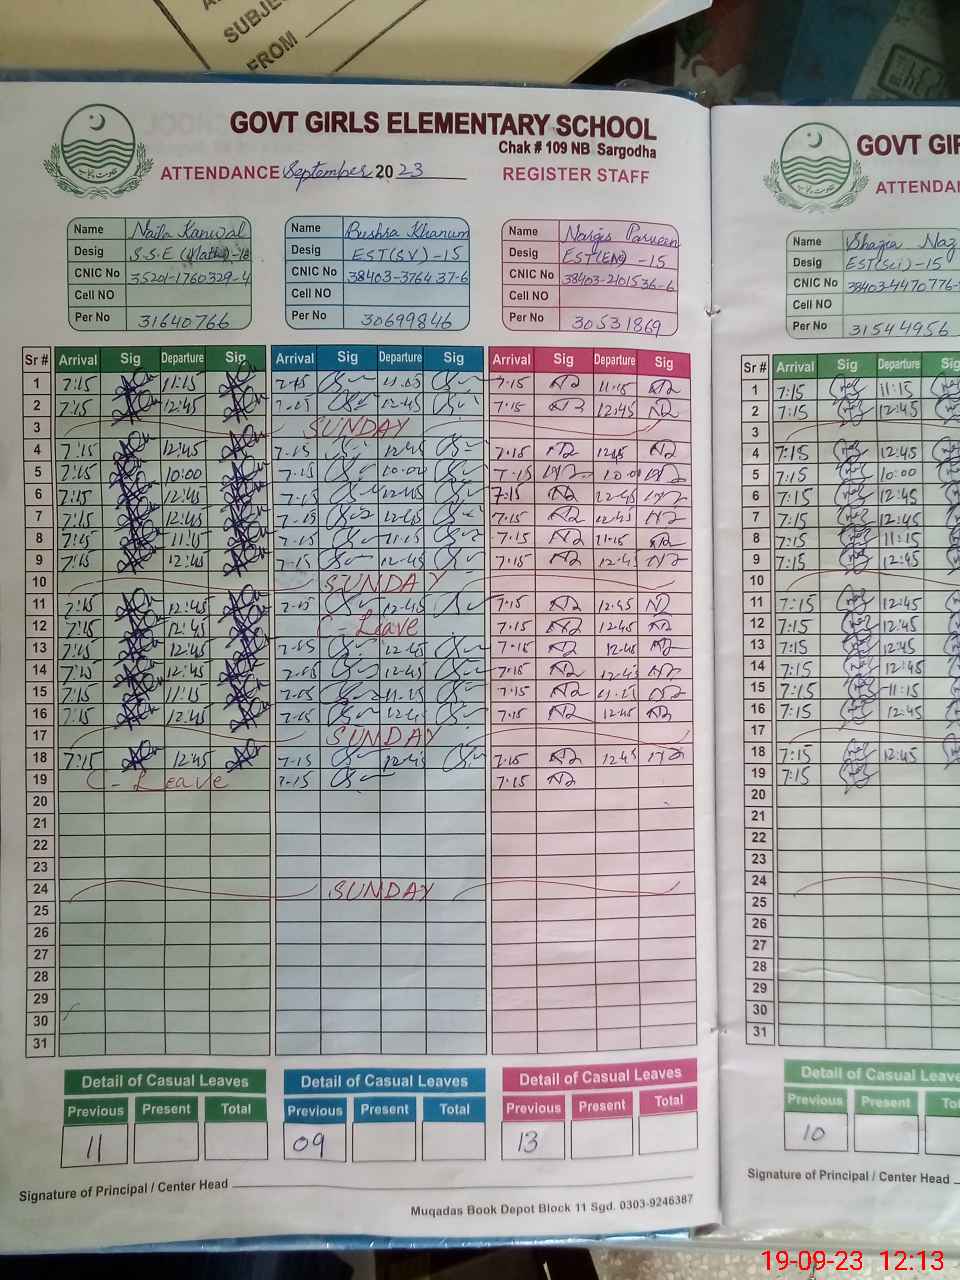 SUBJE
FROM
GOVT GIRLS ELEMENTARY SCHOOL
Chak # 109 NB Sargodha
ATTENDANCE September 2023 REGISTER STAFF
Name Naila Kanwal
Desig S.S.E (Math)-16
CNIC No 35201-1760329-4
Cell NO
Per No 31640766
Name Bushra Khanum
Desig EST(SV)-15
CNIC No 38403-3764 37-6
Cell NO
Per No 30699846
Name Nargis Parveen
Desig EST(EM) -15
CNIC No 38403-2101536-6
Cell NO
Per No 30531869
Sr # Arrival Sig Departure Sig Arrival Sig Departure Sig Arrival Sig Departure Sig
1 7:15 11:15 7.15 11.15 7.15 11.15
2 7:15 12:45 7.15 12.45 7.15 12.45
3 SUNDAY
4 7:15 12:45 7.15 12.45 7.15 12.45
5 7:15 10:00 7.15 10.00 7.15 10.00
6 7:15 12:45 7.15 12.45 7.15 12.45
7 7:15 12:45 7.15 12.45 7.15 12.45
8 7:15 11:15 7.15 11.15 7.15 11.15
9 7:15 12:45 7.15 12.45 7.15 12.45
10 SUNDAY
11 7:15 12:45 7.15 12.45 7.15 12.45
12 7:15 12:45 C-Leave 7.15 12.45
13 7:15 12:45 7.15 12.45 7.15 12.45
14 7:15 12:45 7.15 12.45 7.15 12.45
15 7:15 11:15 7.15 11.15 7.15 11.15
16 7:15 12:45 7.15 12.45 7.15 12.45
17 SUNDAY
18 7:15 12:45 7.15 12.45 7.15 12.45
19 C-Leave 7.15 7.15
20
21
22
23
24 SUNDAY
25
26
27
28
29
30
31
Detail of Casual Leaves Detail of Casual Leaves Detail of Casual Leaves
Previous Present Total Previous Present Total Previous Present Total
11 09 13
Signature of Principal / Center Head
Muqadas Book Depot Block 11 Sgd. 0303-9246387
GOVT GI
ATTENDA
Name Shazia Naz
Desig EST(Sci)-15
CNIC No 38403-4470776-
Cell NO
Per No 31544956
Sr # Arrival Sig Departure Sig
1 7:15 11:15
2 7:15 12:45
3
4 7:15 12:45
5 7:15 10:00
6 7:15 12:45
7 7:15 12:45
8 7:15 11:15
9 7:15 12:45
10
11 7:15 12:45
12 7:15 12:45
13 7:15 12:45
14 7:15 12:45
15 7:15 11:15
16 7:15 12:45
17
18 7:15 12:45
19 7:15
20
21
22
23
24
25
26
27
28
29
30
31
Detail of Casual Leave
Previous Present To
10
Signature of Principal / Center Head
19-09-23 12:13